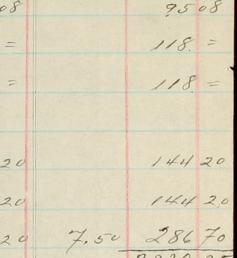 08 95 08
= 118. =
= 118 =
20 144 20
20 144 20
20 7.50 286 70